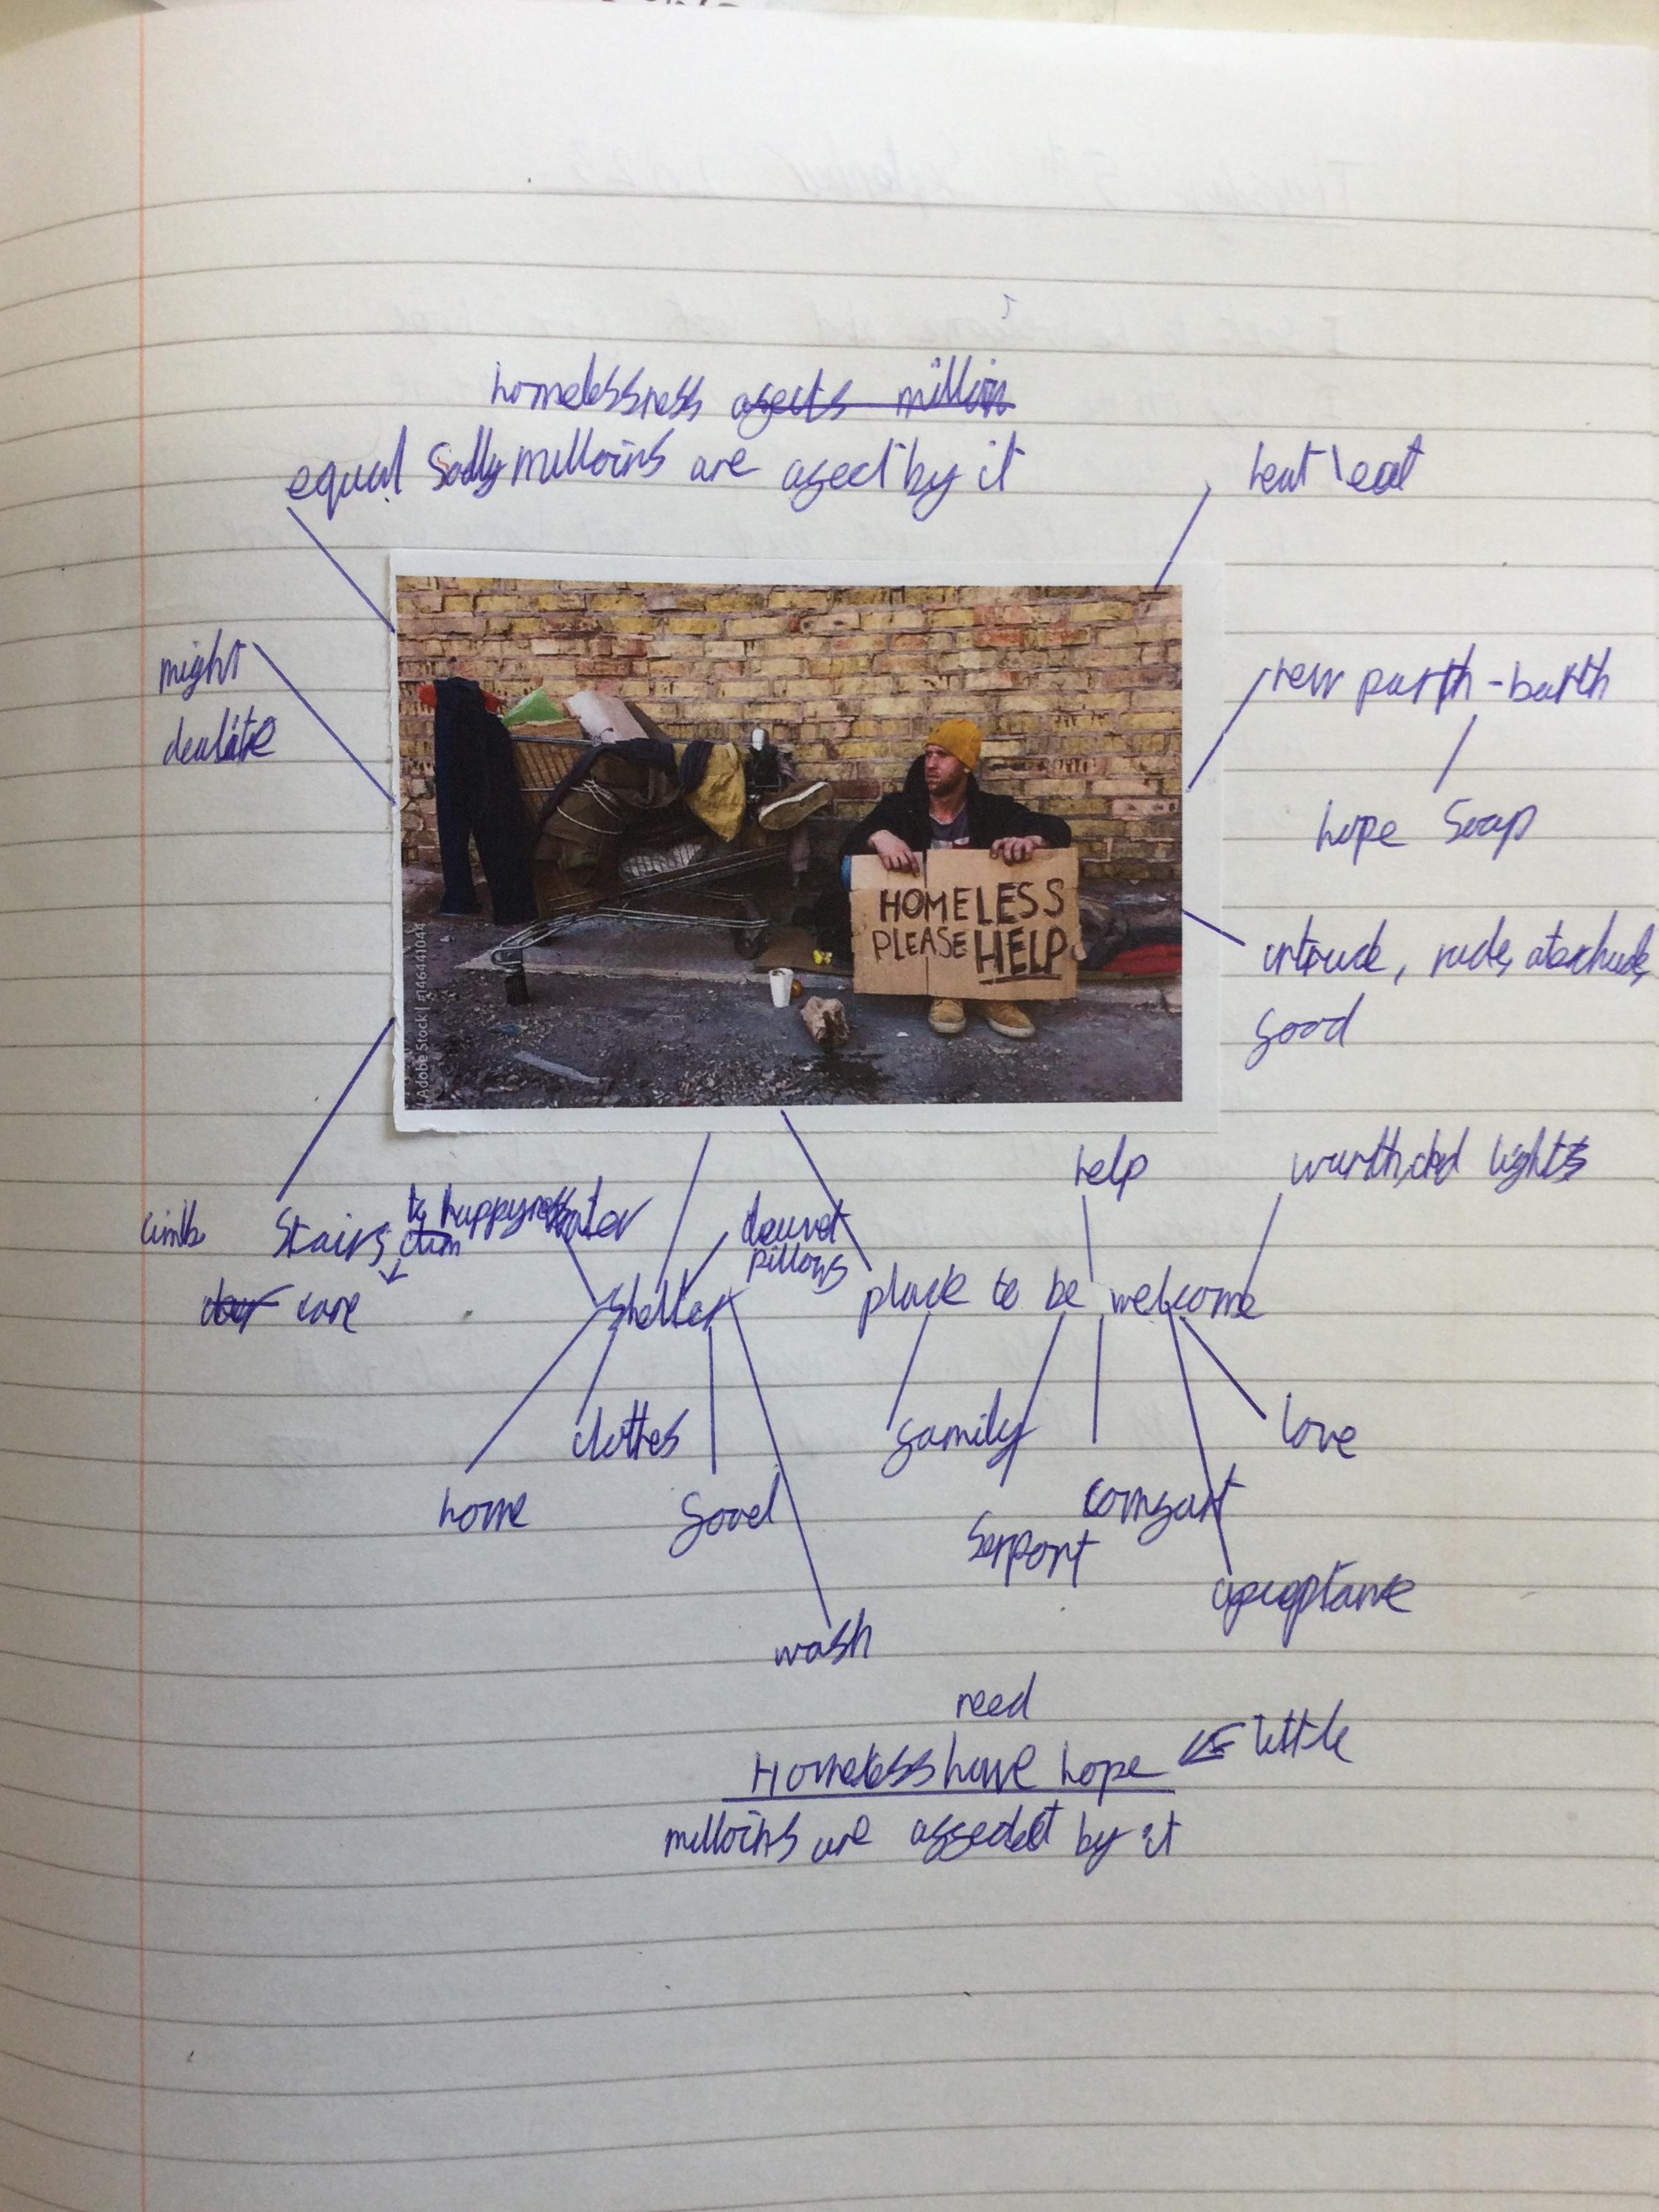 homelessness agects million
equal Sadly milloins are agect by it
heat \ eat
might
new parth - barth
hope Soap
rude,
good
HOMELESS
PLEASE HELP
Adobe Stock | #146441044
help
lights
climb Stairs to happyness water
care
douvet
pillows
Shelter
place to be welcome
clothes
family
love
home
food
Serport
comfart
wash
need
Homeless have hope ⇐ little
milloins are by it